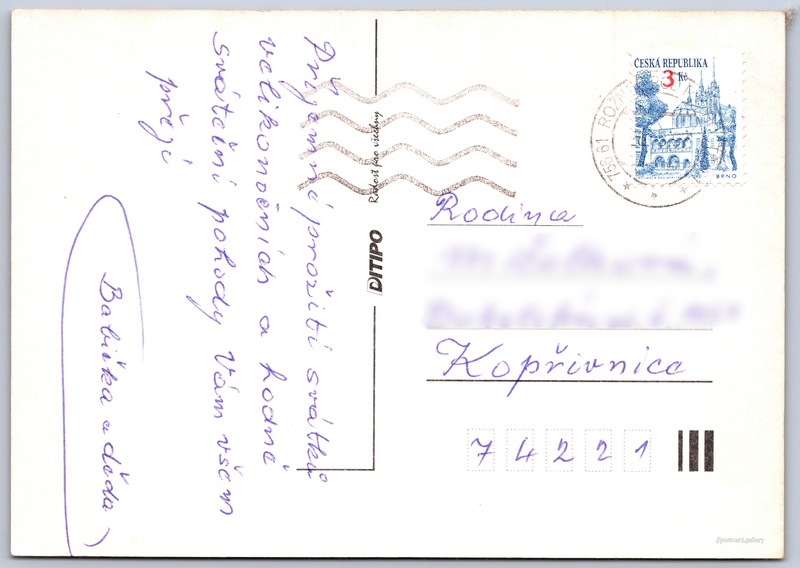 Příjemné prožití svátků
velikonočních a hodně
sváteční pohody Vám všem
přejí
Babička a děda
Radost pro všechny
DITIPO
ČESKÁ REPUBLIKA
3 Kč
BRNO
756 61 ROŽN
Rodina
Kopřivnice
74221
//postcard.gallery